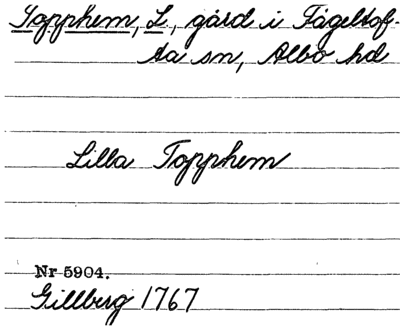 Topphem, L, gård i Fågeltof-
ta sn, Albo hd
Lilla Topphem
Nr 5904.
Gillberg 1767